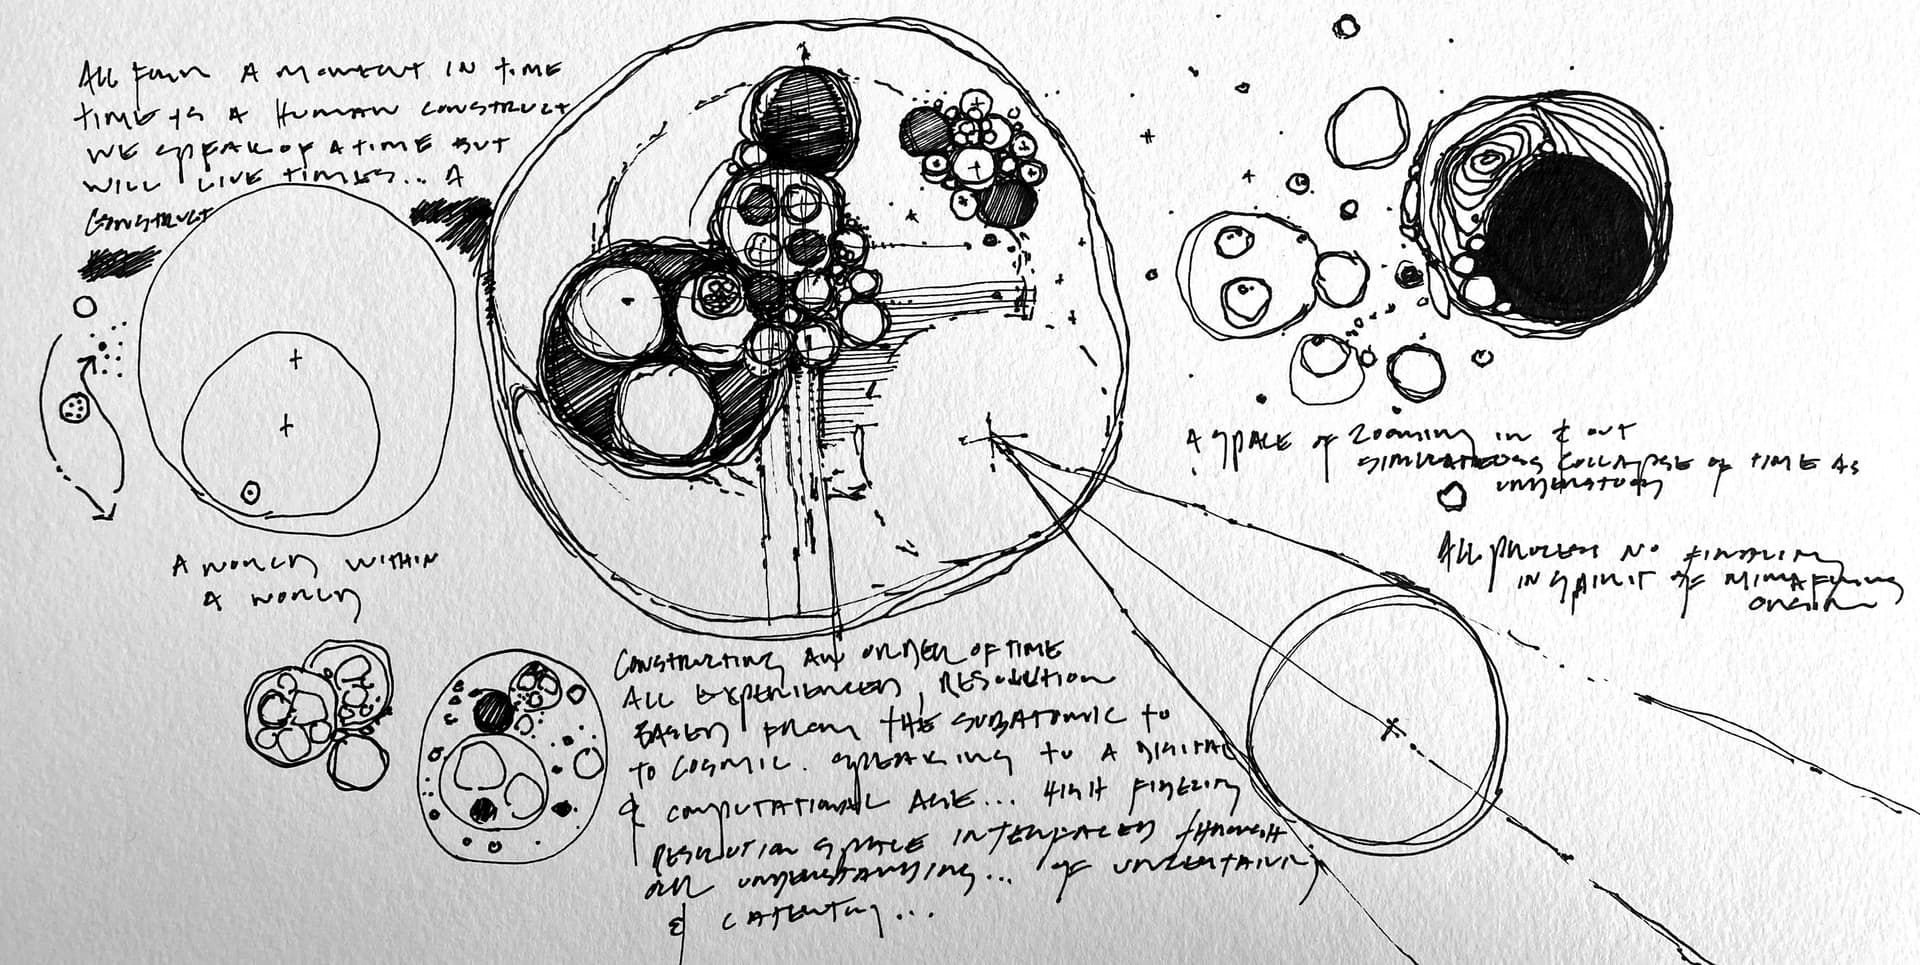 ALL FORM A MOMENT IN TIME
TIME IS A HUMAN CONSTRUCT
WE SPEAK OF A TIME BUT
WILL LIVE TIMES... A
CONSTRUCT
A WORLD WITHIN
A WORLD
CONSTRUCTING AN ORDER OF TIME
ALL EXPERIENCED, RESOLUTION
BASED FROM THE SUBATOMIC TO
TO COSMIC. SPEAKING TO A DIGITAL
& COMPUTATIONAL AGE... HIGH FIDELITY
RESOLUTION SPACE INTERFACED THROUGH
OUR UNDERSTANDING... OF UNCERTAINTY
&
A SPACE OF ZOOMING IN & OUT
COLLAPSE OF TIME AS
UNDERSTOOD
ALL PROCESS NO
IN SPIRIT OF